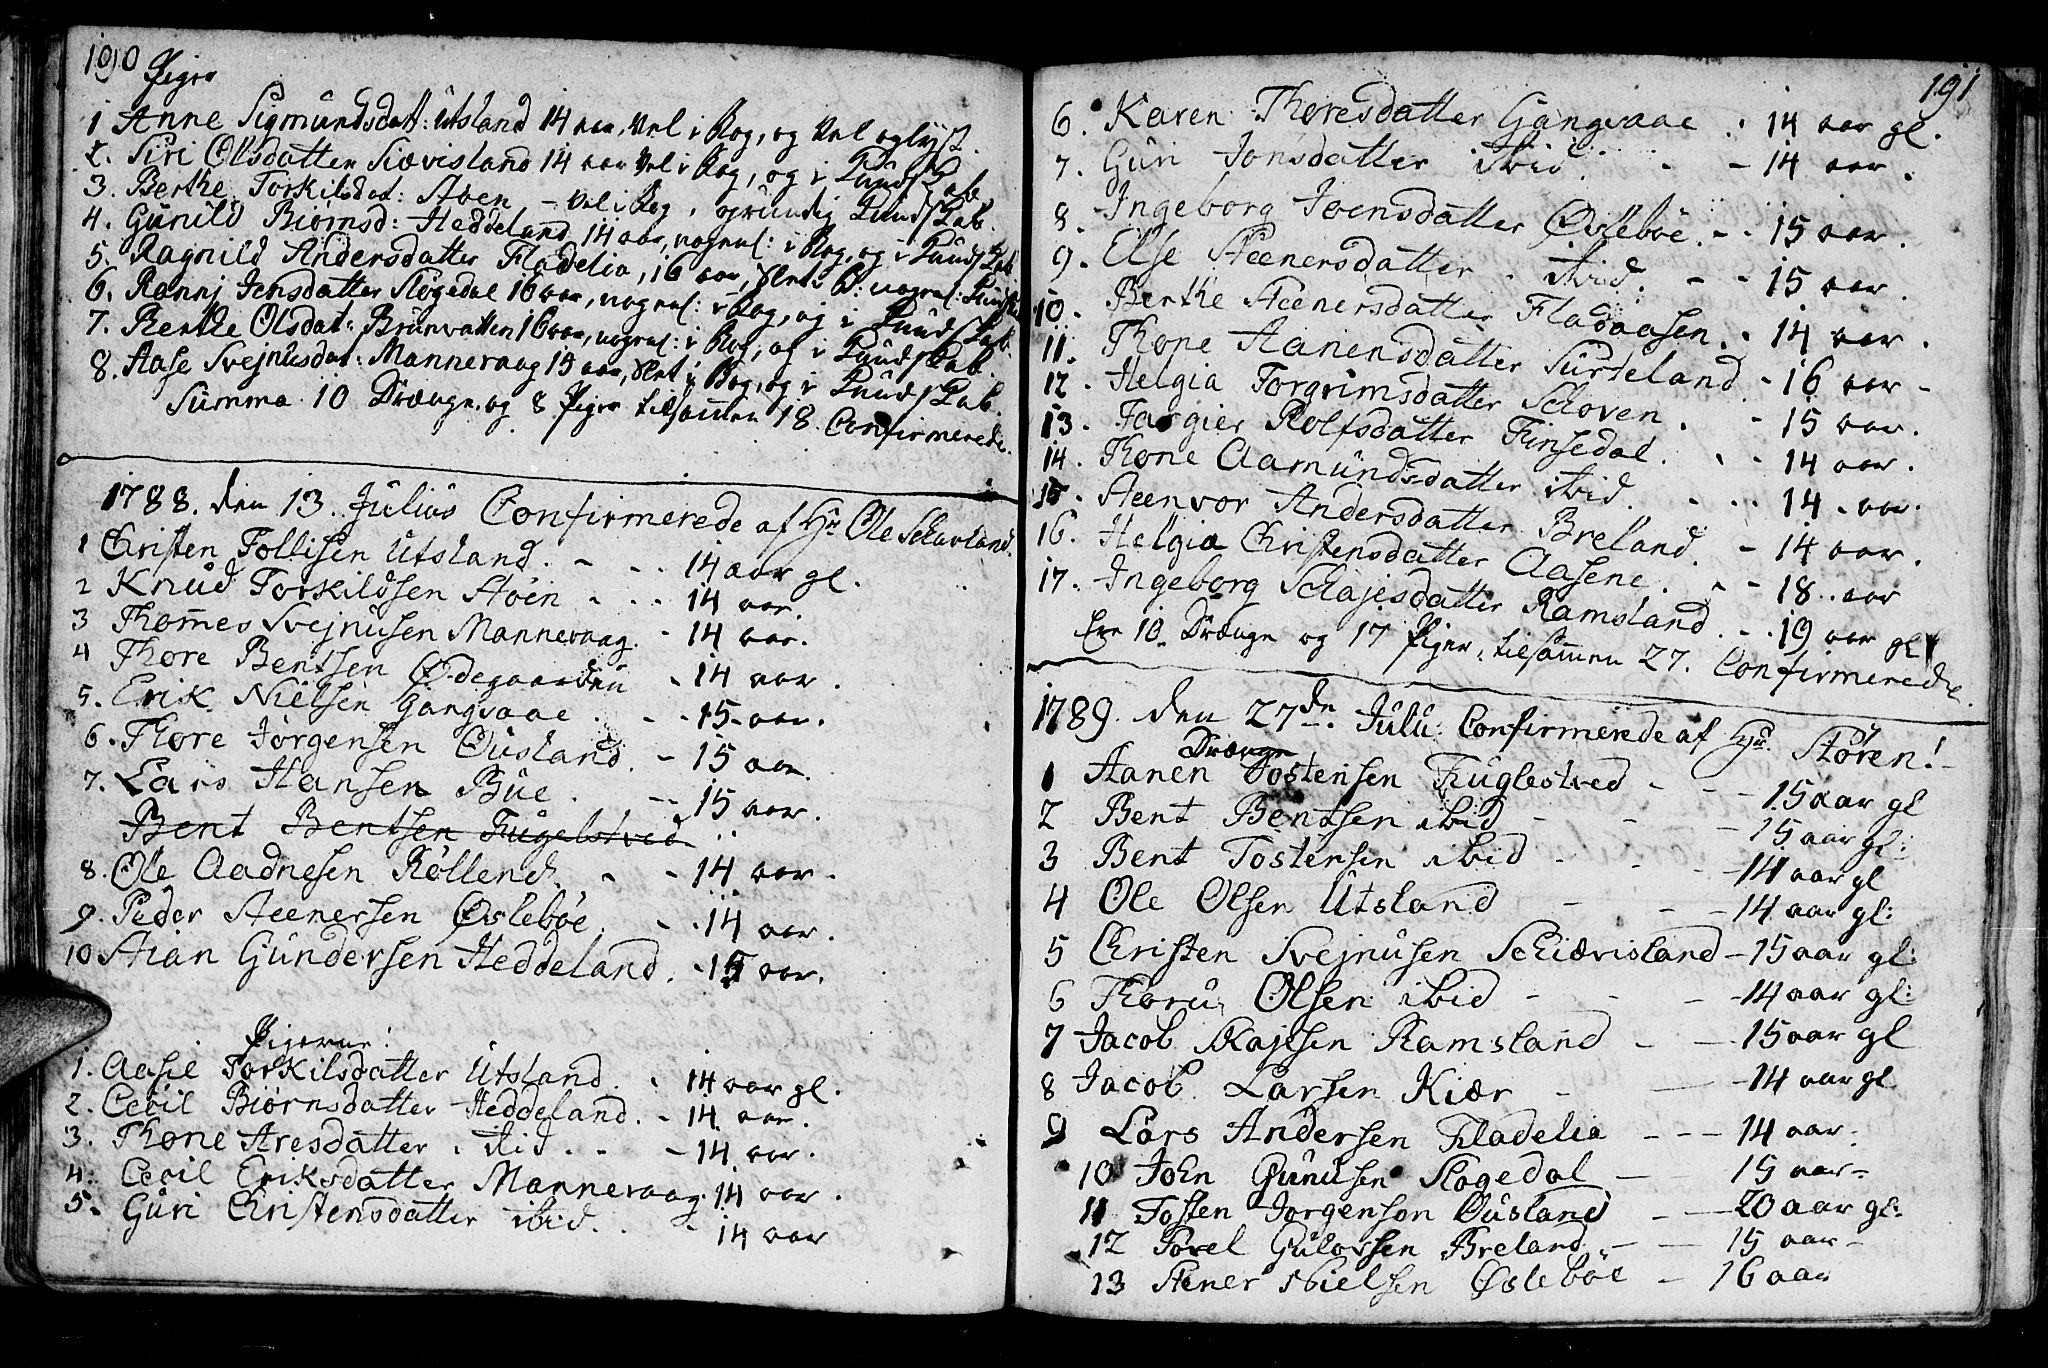 190
Piger
1 Anne Sigmundsdatt: Utsland 14 aar, Vel i Bog, og Vel oplyst.
2. Siri Olsdatter Siævisland 14 aar Vel i Bog, og i Kundskab.
3. Berthe Torkilsdat: Støen – Vel i Bog, grundig Kundskab.
4. Gunild Biørnsd: Heddeland, 14 aar, nogenl: i Bog, og i Kundskab
5. Ragnild Andersdatter Fladelia, 16 aar, slet i B: nogenl: Kundsk
6. Rannj Jensdatter Støgedal 16 aar, nogenl: i Bog, og i Kundskab.
7. Berthe Olsdat: Brunvatten 16 aar, nogenl: i Bog, og i Kundskab.
8. Aase Svejnusdat: Mannevaag 15 aar, slet i Bog, og i Kundskab.
Summa 10 Drænge og 8 Piger tilsammen 18 Confirmerede.
1788. den 13. Julius Confirmerede af Hr Ole Schavland.
1 Christen Tollisen Utsland. - - - 14 aar gl.
2 Knud Torkildsen Støen - - - 14 aar.
3 Thommes Svejnusen Mannevaag. - 14 aar.
4 Thore Bentsen Ødegaarden - 14 aar.
5. Erik Nielsen Gangvaae. - - 15 aar.
6. Thore Jørgensen Ousland. - 15 aar.
7. Lars Hansen Bue. -- 15 aar.
Bent Bentsen Fugelstved
8. Ole Aadnesen Røllend. - - 14 aar.
9. Peder Steenersen Øslebøe. - - 14 aar.
10 Stian Gundersen Heddeland. - 15 aar.
Pigerne:
1. Aasie Torkilsdatter Utsland. - 14 aar gl.
2. Cecil Biørnsdatter Heddeland. - 14 aar.
3. Thone Aresdatter. ibid. - - 14 aar.
4. Cecil Eriksdatter Mannevaag. 14 aar.
5. Guri Christensdatter ibid. - 14 aar
191
6. Karen Thoresdatter Gangvaae. : 14 aar gl.
7. Guri Jonsdatter ibid. - - 14 aar.
8. Ingeborg Joensdatter Øslebøe. - - 15 aar.
9. Else Steenersdatter - ibid. - - 15 aar.
10. Berthe Steenersdatter Fladaasen. - 14 aar.
11. Thone Aanensdatter Surteland - 16 aar -
12. Helgia Torgrimsdatter Schoven. - 15 aar.
13. Targier Rolfsdatter Finsedal. - - 14 aar.
14. Thone Aamundsdatter ibid. - - - 14 aar.
15. Steenvor Andersdatter Breland. - 14 aar.
16. Helgia Christensdatter Aasene. - - 18 aar
17. Ingeborg Schajesdatter Ramsland. - - 19 aar gl
Ere 10 Drænge og 17 Piger, tilsammen 27. Confirmerede.
1789. den 27de Julii Confirmerede af Hr. Støren!
Drænge
1 Aanen Tostensen Fuglestved - - - 15 aar gl
2 Bent Bentsen ibid - - - 15 aar gl:
3 Bent Tostensen ibid - - - 14 aar gl
4 Ole Olsen Utsland - - - 14 aar gl:
5 Christen Svejnusen Schiævisland - 15 aar gl:
6 Thoru Olsen ibid - - - 14 aar gl:
7 Jacob Skajesen Ramsland - - 15 aar gl
8 Jacob Larsen Kiær - - 14 aar gl
9 Lars Andersen Fladelia - - - 14 aar.
10 Joen Gunusen Støgedal - - 15 aar-
11 Tosten Jørgenson Ousland - - 20 aar gl:
12 Tovel Gulovsen Breland - - 15 aar -
13 Stener Nielsen Øslebøe - 16 aar